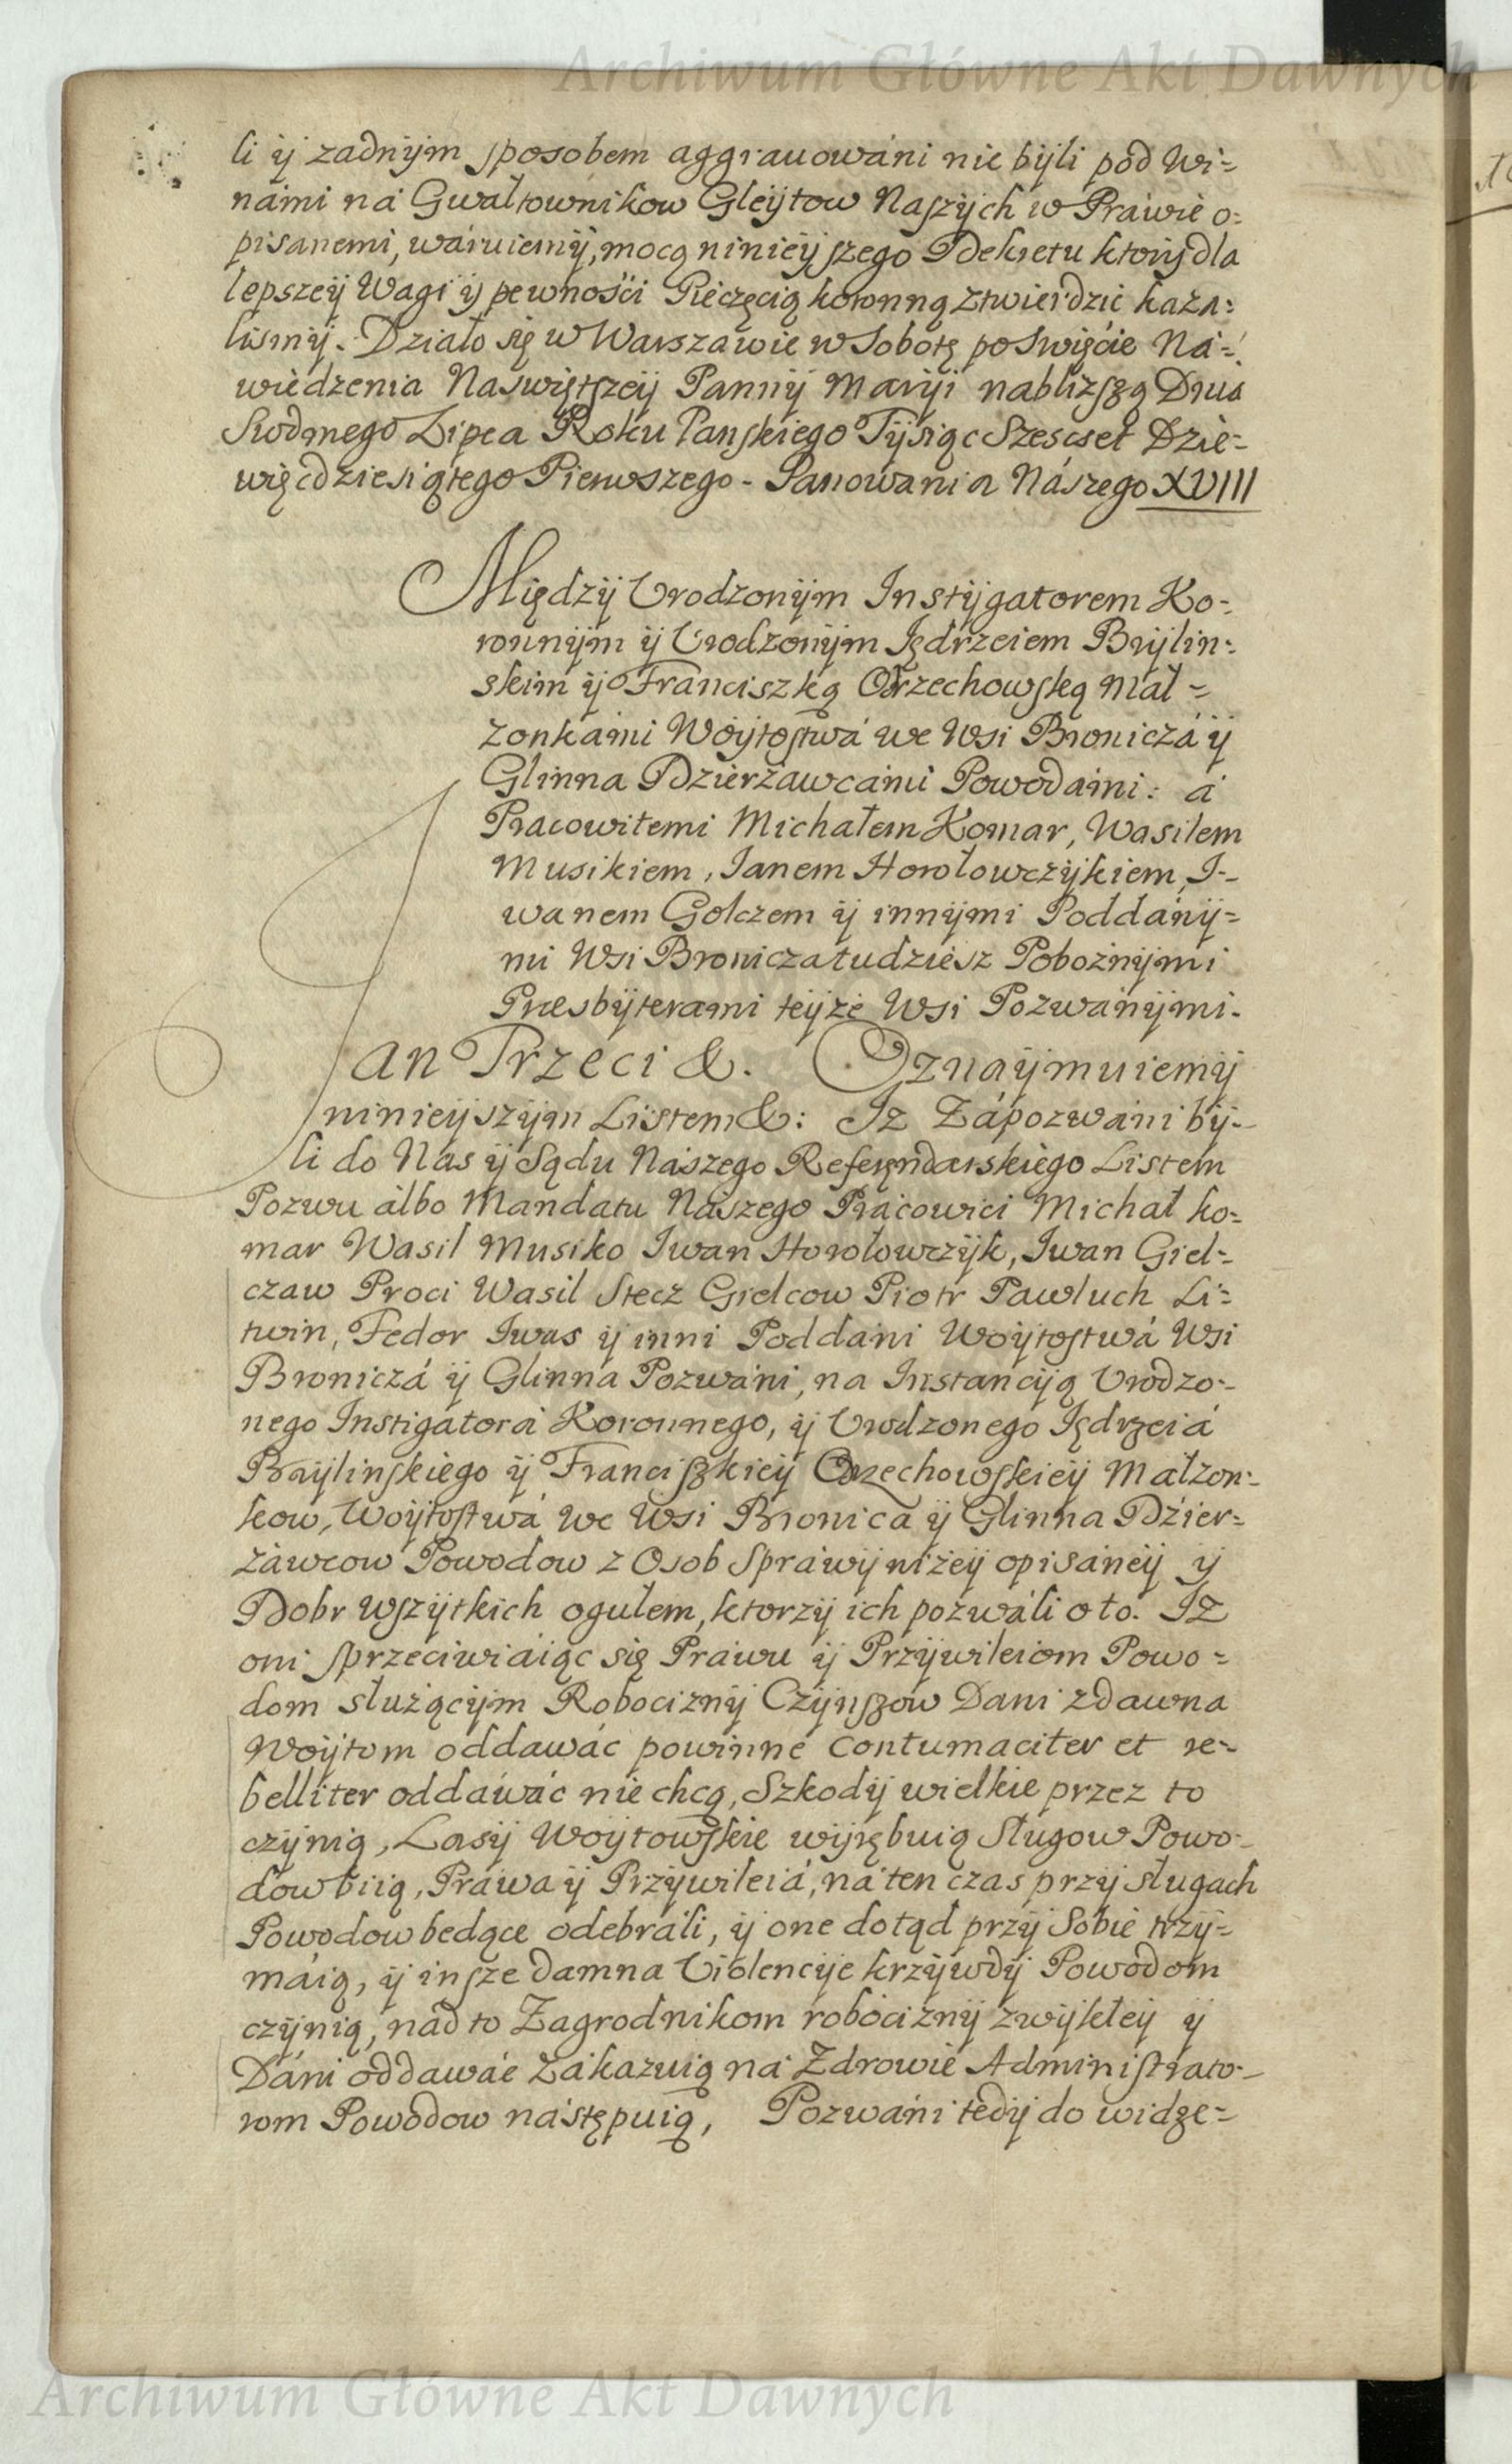 Archiwum Główne Akt Dawnych
li ÿ zadnÿm sposobem aggrauowáni nie bÿli pod Wi=
námi ná Gwałtownikow Gleÿtow Naszÿch w Práwie o=
pisanemi, wáruiemÿ, mocą ninieÿszego Dekretu ktorÿ dla
lepszeÿ Wagi ÿ pewności Pieczęcią koronną ztwierdzić kaza=
lismÿ. Działo się w Warszawie w Sobotę po Swięcie Ná=
wiedzenia Naswiętszeÿ Pannÿ Marÿi nablizszą Dnia
Siodmego Lipca Roku Panskiego Tÿsiąc Szescset Dzie=
więcdziesiątego Pierwszego - Panowania Nászego XVIII
Międzÿ Urodzonÿm Instÿgatorem Ko=
ronnÿm ÿ Urodzonÿm Jędrzeiem Brÿlin=
skim ÿ Franciszką Orzechowską Máł=
zonkámi Woÿtostwá we Wsi Broniczá ÿ
Glinna Dzierżawcámi Powodámi: á
Pracowitemi Michałem Komar, Wasilem
Musikiem, Janem Horołowczÿkiem, I=
wanem Golczem ÿ innÿmi Poddánÿ=
mi Wsi Bronicza tudziesz Pobożnÿmi
Præsbÿterami teÿże Wsi Pozwánÿmi.
Jan Trzeci &. Oznaÿmuiemÿ
ninieÿszÿm Listem &: Iz Zápozwáni bÿ=
li do Nas ÿ Sądu Nászego Referęndarskiego Listem
Pozwu álbo Mandatu Nászego Prácowici Michał Ko=
mar Wasil Musiko Iwan Horołowczÿk, Iwan Giel=
czaw Proci Wasil Stecz Gielcow Piotr Pawluch Li=
twin, Fedor Iwas ÿ inni Poddáni Woÿtostwá Wsi
Broniczá ÿ Glinna Pozwáni, na Instancÿą Urodzo=
nego Instigátorá Koronnego, ÿ Urodzonego Jędrzeiá
Brÿlinskiego ÿ Franciszkieÿ Orzechowskieÿ Małzon=
kow, Woÿtostwá we Wsi Bronica ÿ Glinna Dzier=
záwcow Powodow z Osob Spráwÿ niżeÿ opisáneÿ ÿ
Dobr wszÿtkich ogułem, ktorzÿ ich pozwáli o to. Iz
oni sprzeciwiáiąc się Práwu ÿ Przÿwileiom Powo=
dom służącÿm Robociznÿ Czÿnszow Dani zdawna
Woÿtom oddawáć powinne contumaciter et re=
belliter oddáwáć nie chcą, Szkodÿ wielkie przez to
czÿnią, Lasÿ Woÿtowskie wÿrębuią Sługow Powo=
dow biią, Práwa ÿ Przÿwileiá, ná ten czas przÿ sługach
Powodow bedące odebráli, ÿ one dotąd przÿ Sobie trzÿ=
máią, ÿ insze damna Violencÿe krzÿwdÿ Powodom
czÿnią, nád to Zagrodnikom robociznÿ zwÿkłeÿ ÿ
Dáni oddawáć zákazuią ná Zdrowie Administrato=
rom Powodow nástępuią, Pozwáni tedÿ do widze=
Archiwum Główne Akt Dawnych